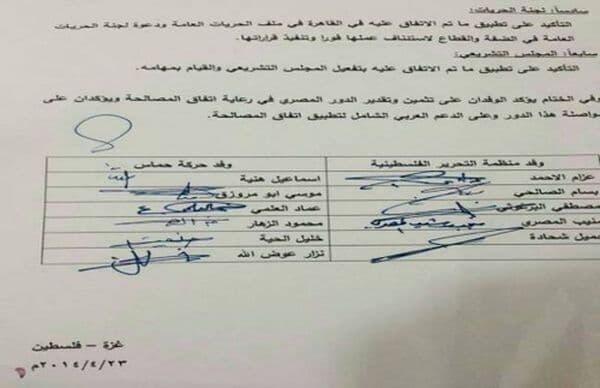 سادساً: لجنة الحريات:
التأكيد على تطبيق ما تم الاتفاق عليه في القاهرة في ملف الحريات العامة ودعوة لجنة الحريات
العامة في الضفة والقطاع لاستئناف عملها فورا وتنفيذ قراراتها.
سابعاً: المجلس التشريعي:
التأكيد على تطبيق ما تم الاتفاق عليه بتفعيل المجلس التشريعي والقيام بمهامه.
وفي الختام يؤكد الوفدان على تثمين وتقدير الدور المصري في رعاية اتفاق المصالحة ويؤكدان على
مواصلة هذا الدور وعلى الدعم العربي الشامل لتطبيق اتفاق المصالحة.
وفد منظمة التحرير الفلسطينية وفد حركة حماس
عزام الاحمد اسماعيل هنية
بسام الصالحي موسى ابو مرزوق
مصطفى البرغوثي عماد العلمي
منيب المصري محمود الزهار
جميل شحادة خليل الحية
نزار عوض الله
غزة – فلسطين
٢٠١٤/٤/٢٣م